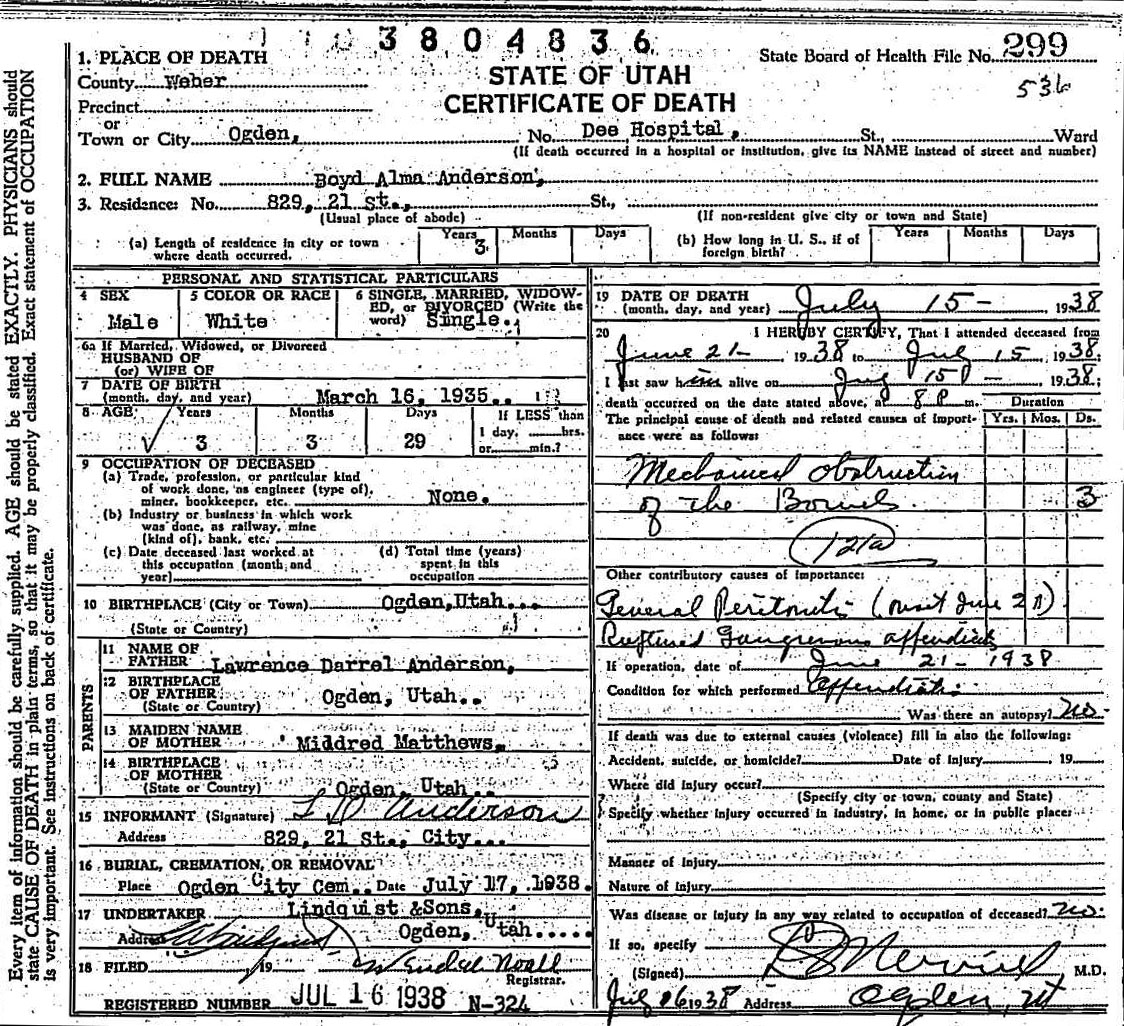 3804836
1. PLACE OF DEATH
County Weber
Precinct
or
Town or City Ogden,
STATE OF UTAH
CERTIFICATE OF DEATH
State Board of Health File No. 299
536
No. Dee Hospital, St., Ward
(If death occurred in a hospital or institution, give its NAME instead of street and number)
2. FULL NAME Boyd Alma Anderson,
3. Residence: No. 829, 21 st., St.,
(Usual place of abode) (If non-resident give city or town and State)
(a) Length of residence in city or town where death occurred. Years 3 Months Days
(b) How long in U. S., if of foreign birth? Years Months Days
PERSONAL AND STATISTICAL PARTICULARS
4 SEX Male
5 COLOR OR RACE White
6 SINGLE, MARRIED, WIDOW-
ED, or DIVORCED (Write the
word) Single.
6a If Married, Widowed, or Divorced
HUSBAND OF
(or) WIFE OF
7 DATE OF BIRTH
(month, day, and year) March 16, 1935.
8 AGE Years Months Days If LESS than
3 3 29 1 day, hrs.
or min.?
9 OCCUPATION OF DECEASED
(a) Trade, profession, or particular kind
of work done, as engineer (type of),
miner, bookkeeper, etc. None.
(b) Industry or business in which work
was done, as railway, mine
(kind of), bank, etc.
(c) Date deceased last worked at
this occupation (month and
year)
(d) Total time (years)
spent in this
occupation
10 BIRTHPLACE (City or Town) Ogden, Utah...
(State or Country)
PARENTS
11 NAME OF
FATHER Lawrence Darrel Anderson,
12 BIRTHPLACE
OF FATHER Ogden, Utah..
(State or Country)
13 MAIDEN NAME
OF MOTHER Mildred Matthews.
14 BIRTHPLACE
OF MOTHER
(State or Country) Ogden, Utah..
15 INFORMANT (Signature) L D Anderson
Address 829, 21 St., City...
16 BURIAL, CREMATION, OR REMOVAL
Place Ogden City Cem.. Date July 17, 1938.
17 UNDERTAKER Lindquist &Sons,
Address Ogden, Utah.....
18 FILED 19 Wendal Noall
Registrar.
REGISTERED NUMBER JUL 16 1938 N-324
19 DATE OF DEATH
(month, day, and year) July 15- 1938
20 I HEREBY CERTIFY, That I attended deceased from
June 21- 1938 to July 15, 1938;
I last saw him alive on 15 - 1938;
death occurred on the date stated above, at 8 P m. Duration
The principal cause of death and related causes of import-
ance were as follows: Yrs. Mos. Ds.
Mechanical obstruction
of the Bowels. 3
Other contributory causes of importance:
General Peritonitis (onset June 21)
Ruptured Gangrenous appendicitis
If operation, date of June 21-1938
Condition for which performed appendicitis
Was there an autopsy? no-
If death was due to external causes (violence) fill in also the following:
Accident, suicide, or homicide? Date of injury 19
Where did injury occur?
(Specify city or town, county and State)
Specify whether injury occurred in industry, in home, or in public place:
Manner of injury
Nature of injury
Was disease or injury in any way related to occupation of deceased? no.
If so, specify
(Signed) Merrill M.D.
July 16 1938 Address Ogden, Ut
Every item of information should be carefully supplied. AGE should be stated EXACTLY. PHYSICIANS should
state CAUSE OF DEATH in plain terms, so that it may be properly classified. Exact statement of OCCUPATION
is very important. See instructions on back of certificate.